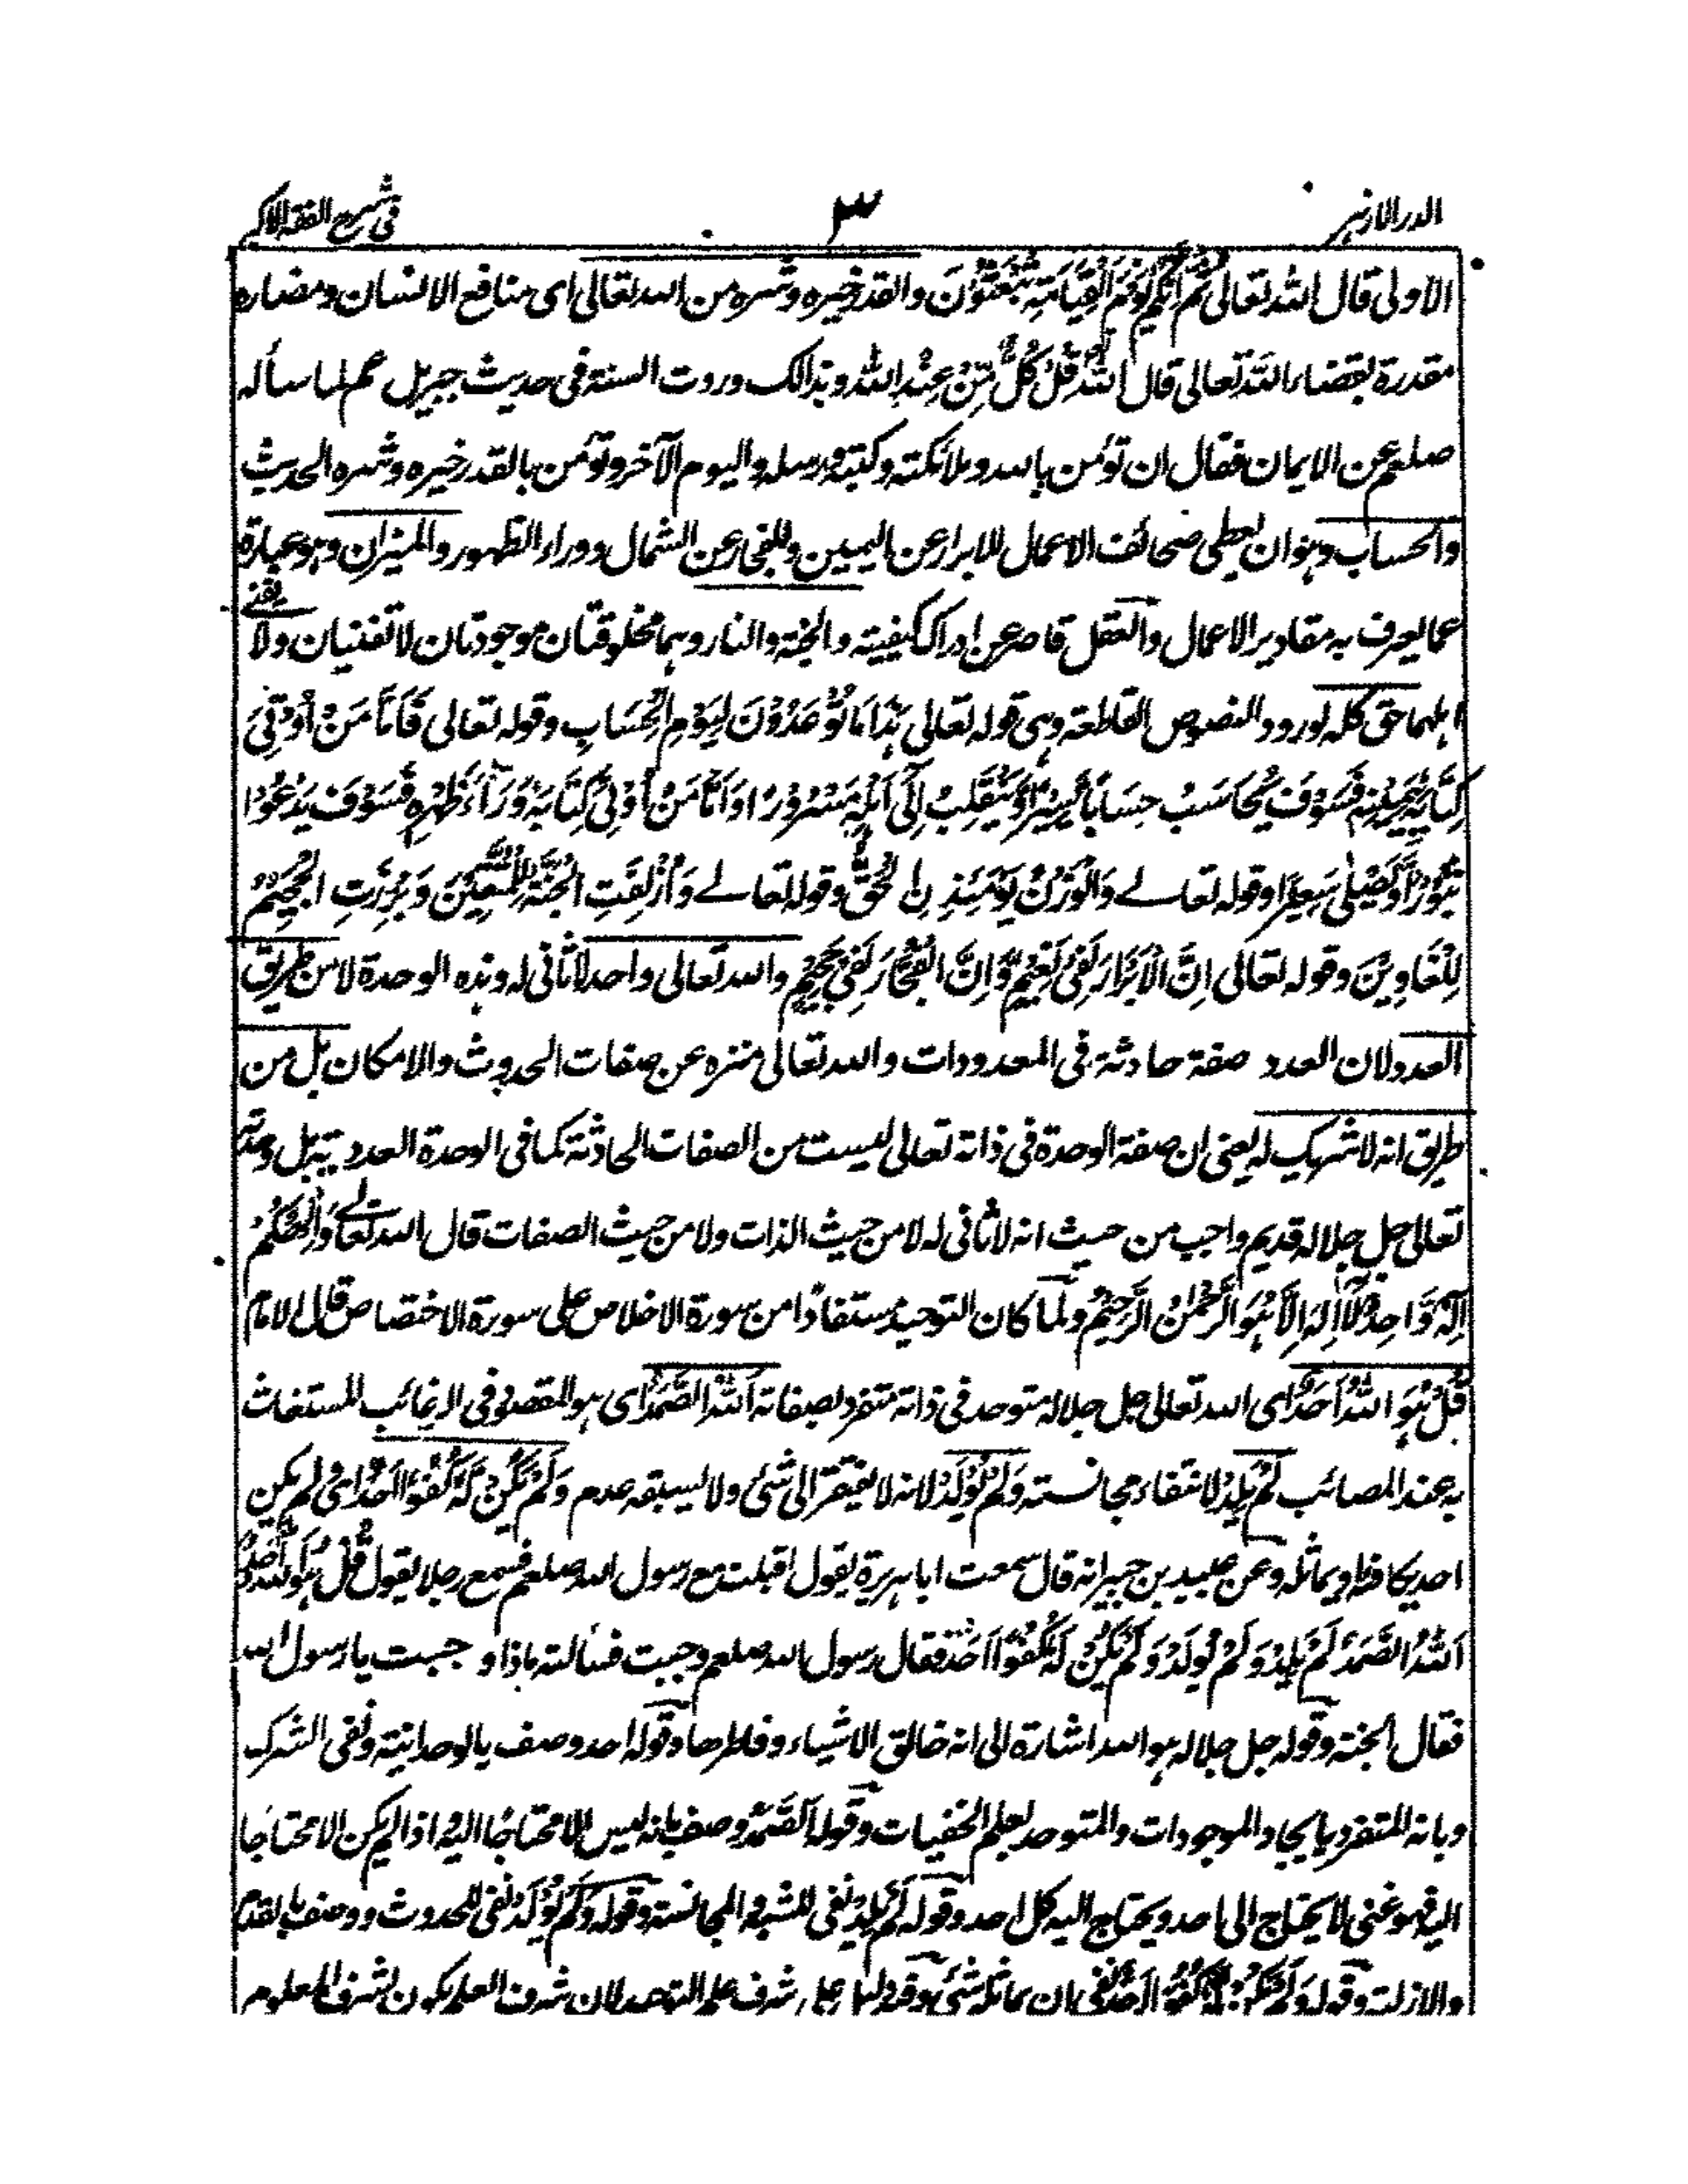 الدر الازهر ٣ فی شرح الفقه الاکبر
الاولی قال الله تعالی ثُمَّ اِنَّکُمْ یَوْمَ الْقِیَامَةِ تُبْعَثُوْنَ والقدر خیره وشره من الله تعالی ای منافع الانسان ومضاره
مقدرة بقضاء الله تعالی قال الله قُلْ کُلٌّ مِّنْ عِنْدِ اللّٰهِ وبذالک وردت السنة فی حدیث جبریل عم لما سأله
صلعم عن الایمان فقال ان تؤمن بالله وملائکته وکتبه ورسله والیوم الآخر وتؤمن بالقدر خیره وشره الحدیث
والحساب وهو ان یعطی صحائف الاعمال للابرار عن الیمین وللفجار عن الشمال ووراء الظهور والمیزان وهو عبارة
عما یعرف به مقادیر الاعمال والعقل قاصر عن ادراک کیفیته والجنة والنار وهما مخلوقتان موجودتان لا تفنیان ولا یفنی
اهلهما حق کله لورود النصوص القاطعة وهی قوله تعالی هٰذَا مَا تُوْعَدُوْنَ لِیَوْمِ الْحِسَابِ وقوله تعالی فَاَمَّا مَنْ اُوْتِیَ
کِتَابَهٗ بِیَمِیْنِهٖ فَسَوْفَ یُحَاسَبُ حِسَابًا یَّسِیْرًا وَّیَنْقَلِبُ اِلٰی اَهْلِهٖ مَسْرُوْرًا وَاَمَّا مَنْ اُوْتِیَ کِتَابَهٗ وَرَآءَ ظَهْرِهٖ فَسَوْفَ یَدْعُوْا
ثُبُوْرًا وَّیَصْلٰی سَعِیْرًا وقوله تعالے وَالْوَزْنُ یَوْمَئِذِ نِ الْحَقُّ وقوله تعالے وَاُزْلِفَتِ الْجَنَّةُ لِلْمُتَّقِیْنَ وَبُرِّزَتِ الْجَحِیْمُ
لِلْغَاوِیْنَ وقوله تعالی اِنَّ الْاَبْرَارَ لَفِیْ نَعِیْمٍ وَّاِنَّ الْفُجَّارَ لَفِیْ جَحِیْمٍ والله تعالی واحد لا ثانی له وهذه الوحدة لا من طریق
العدد لان العدد صفة حادثة فی المعدودات والله تعالی منزه عن صفات الحدوث والامکان بل من
طریق انه لا شریک له یعنی ان صفة الوحدة فی ذاته تعالی لیست من الصفات الحادثة کما فی الوحدة العددیة بل وحدته
تعالی جل جلاله قدیم واجب من حیث انه لا ثانی له لا من حیث الذات ولا من حیث الصفات قال الله تعالے وَاِلٰهُکُمْ
اِلٰهٌ وَّاحِدٌ لَا اِلٰهَ اِلَّا هُوَ الرَّحْمٰنُ الرَّحِیْمُ ولما کان التوحید مستفادًا من سورة الاخلاص علی سورة الاختصاص قال الامام
قُلْ هُوَ اللّٰهُ اَحَدٌ ای الله تعالی جل جلاله متوحد فی ذاته متفرد بصفاته اَللّٰهُ الصَّمَدُ ای هو المقصود فی الرغائب المستغاث
به عند المصائب لَمْ یَلِدْ لانتفاء مجانسته وَلَمْ یُوْلَدْ لانه لا یفتقر الی شئ ولا یسبقه عدم وَلَمْ یَکُنْ لَّهٗ کُفُوًا اَحَدٌ ای ولم یکن
احد یکافئه ویماثله وعن عبید بن جبیر انه قال سمعت ابا هریرة یقول اقبلت مع رسول الله صلعم فسمع رجلا یقول قُلْ هُوَ اللّٰهُ اَحَدٌ
اَللّٰهُ الصَّمَدُ لَمْ یَلِدْ وَلَمْ یُوْلَدْ وَلَمْ یَکُنْ لَّهٗ کُفُوًا اَحَدٌ فقال رسول الله صلعم وجبت فسألته ماذا وجبت یا رسول الله
فقال الجنة وقوله جل جلاله هو الله اشارة الی انه خالق الاشیاء وفاطرها وقوله احد وصف بالوحدانیة ونفی الشرک
وبانه المتفرد بایجاد الموجودات والمتوحد بعلم الخفیات وقوله الصَّمَدُ وصف بانه لیس الا محتاجًا الیه اذا لم یکن الا محتاجا
الیه فهو غنی لا یحتاج الی احد ویحتاج الیه کل احد وقوله لَمْ یَلِدْ نفی للشبه والمجانسة وقوله وَلَمْ یُوْلَدْ نفی للحدوث ووصف بالقدم
والازلیة وقوله وَلَمْ یَکُنْ لَّهٗ کُفُوًا اَحَدٌ نفی ان یماثله شئ وقد دلیلا علی شرف علم التوحید لان شرف العلم یکون لشرف المعلوم